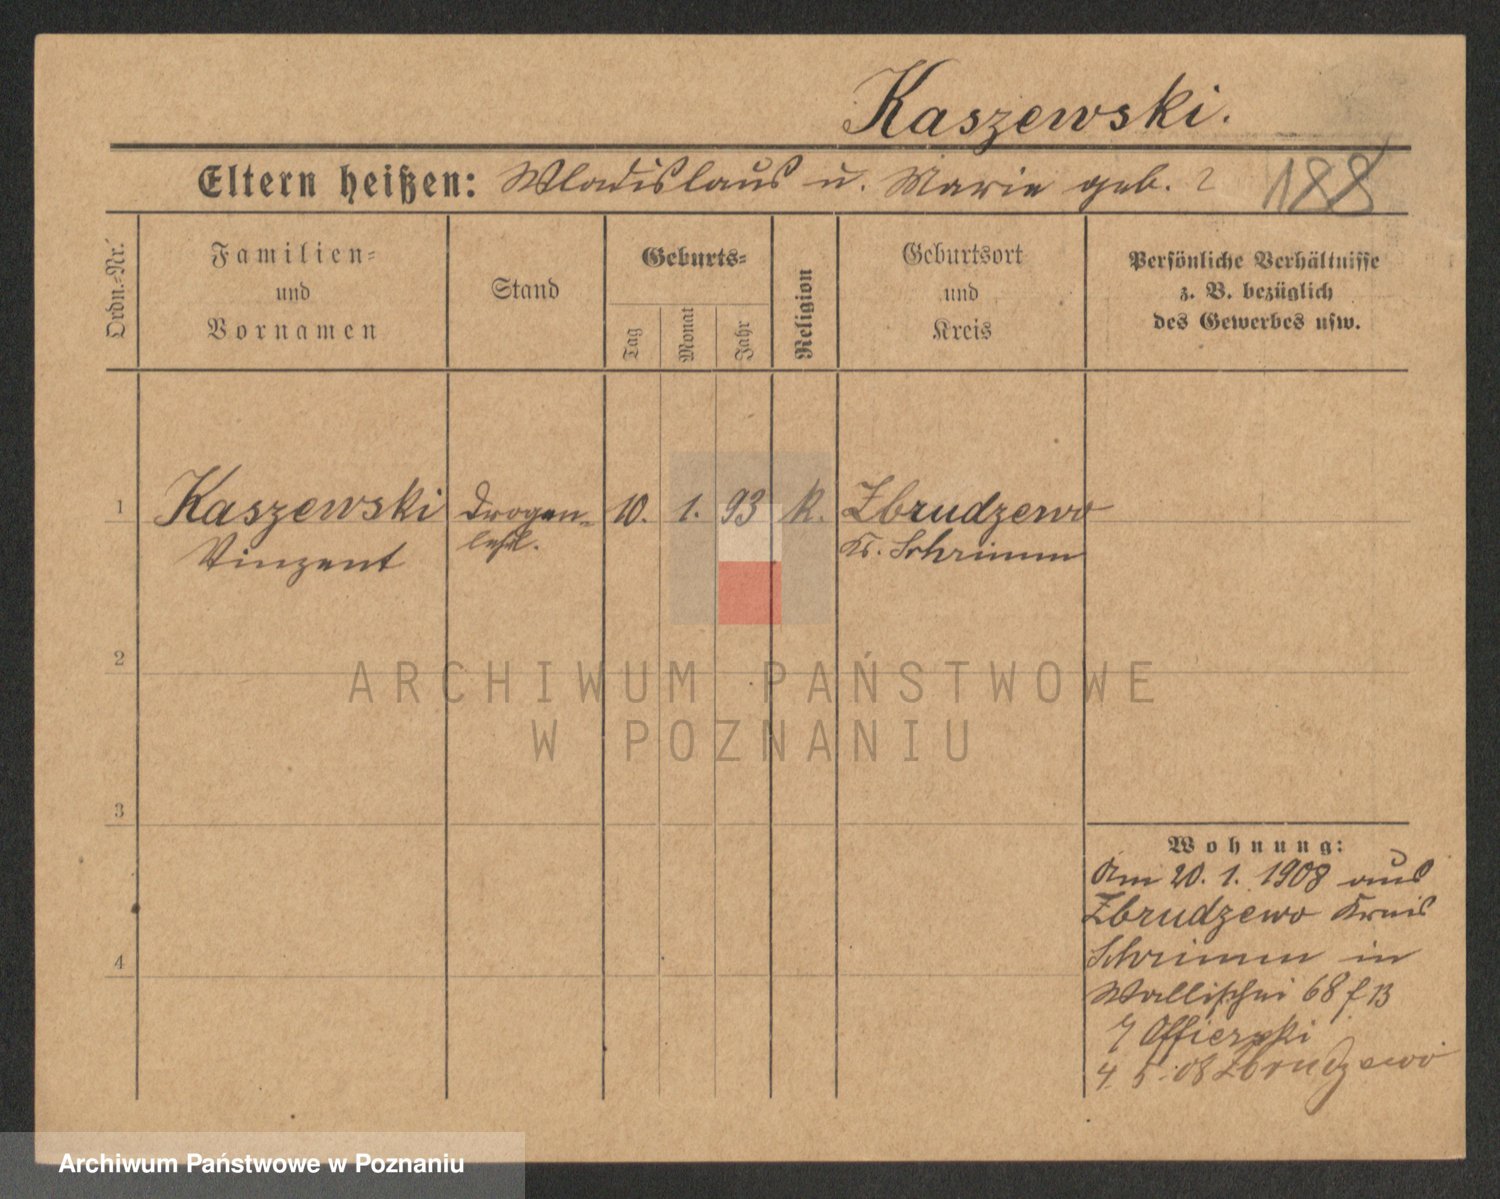 Kaszewski.
Eltern heißen: Wladislaus u. Marie geb. ?
188
Ordn.-Nr.
Familien-
und
Vornamen
Stand
Geburts-
Tag
Monat
Jahr
Religion
Geburtsort
und
Kreis
Persönliche Verhältnisse
z. B. bezüglich
des Gewerbes usw.
1
Kaszewski
Vinzent
Drogen-
lehrl.
10.
1.
93
K.
Zbrudzewo
Kr. Schrimm
2
ARCHIWUM PAŃSTWOWE
W POZNANIU
3
4
Wohnung:
Am 20. 1. 1908 aus
Zbrudzewo Kreis
Schrimm in
Wallischei 68 f B
4. 5. 08 Zbrudzewo
Archiwum Państwowe w Poznaniu